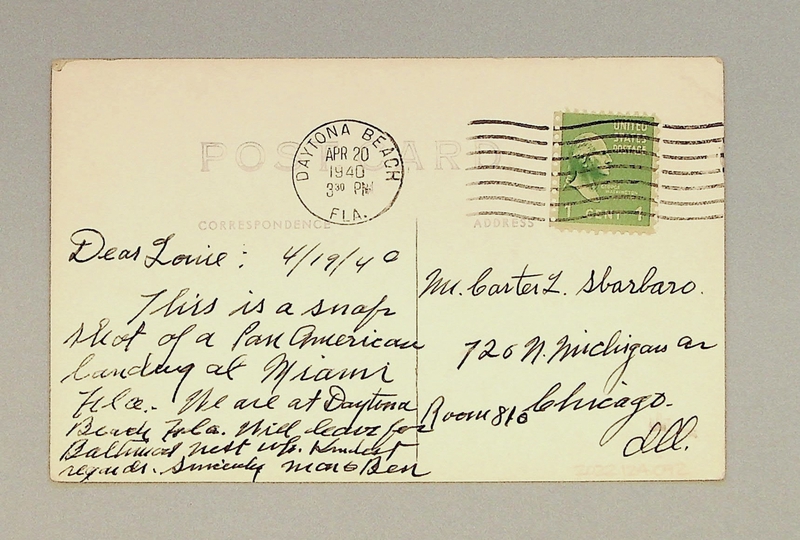 POSTCARD
DAYTONA BEACH
APR 20
1940
3 30 PM
FLA.
UNITED
STATES
POSTAGE
1 CENT 1
CORRESPONDENCE
ADDRESS
Dear Louie: 4/19/40
This is a snap
shot of a Pan American
landing at Miami
Fla. We are at Daytona
Beach Fla. Will leave for
Baltimore next wk. Kindest
regards. Sincerely Ben
Mr. Carter L. Sbarbaro.
720 N. Michigan av
Room 816 Chicago.
Ill.